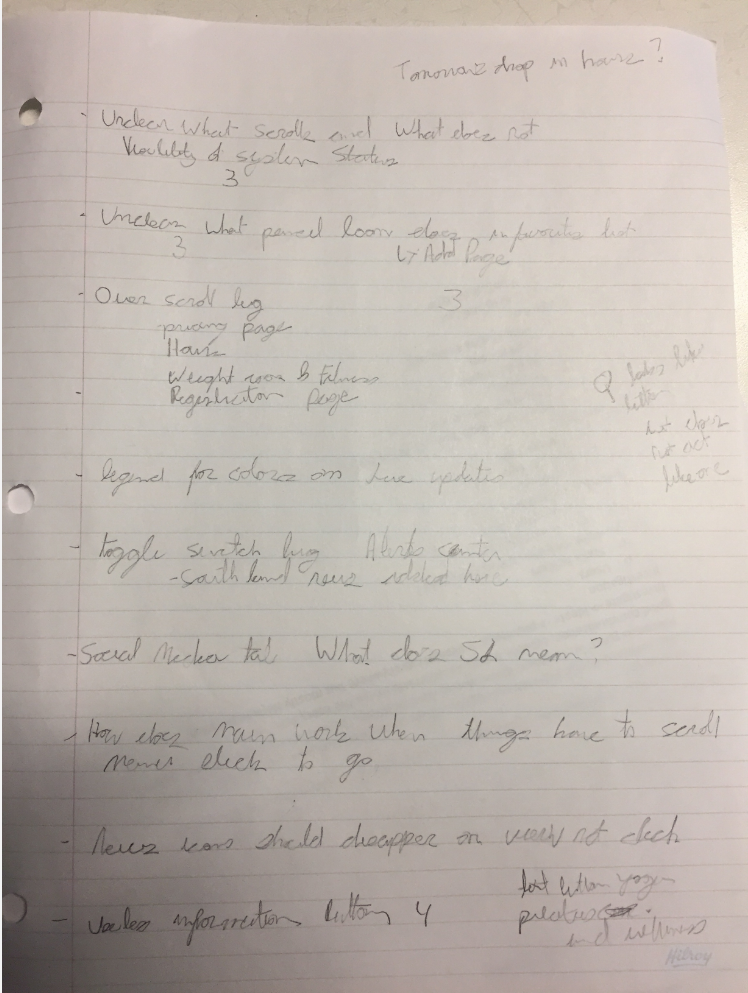 Tomorrowz drop in hourz?
- Unclear What scrollz and What doez not
Visibility of system Status
3
- Unclear What pencil Icon doez in favourites list
3
↳ Add Page
- Over scroll bug 3
pricing page
Hourz
Weight room & fitness
- Registration page
looks like
button
but doez
not act
like one
- legend for colorz on live updates
- toggle switch bug Alerts center
- South land newz added here
- Social Media tab What doez SL mean?
- How doez main work when things have to scroll
menus click to go
- Newz icons should disapper on view not click
- Useless information button 4
last button
and wellness
Hilroy